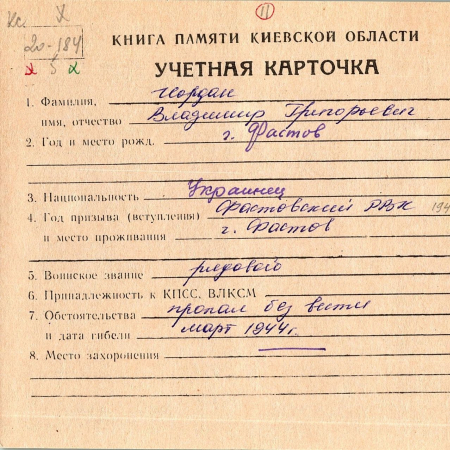 Кс. X
11
20-184
х 5 х
КНИГА ПАМЯТИ КИЕВСКОЙ ОБЛАСТИ
УЧЕТНАЯ КАРТОЧКА
1. Фамилия, Иордан
имя, отчество Владимир Григорьевич
2. Год и место рожд. г. Фастов
3. Национальность Украинец
4. Год призыва (вступления) Фастовский РВК 194
и место проживания г. Фастов
5. Воинское звание рядовой
6. Принадлежность к КПСС, ВЛКСМ
7. Обстоятельства пропал без вести
и дата гибели март 1944г.
8. Место захоронения